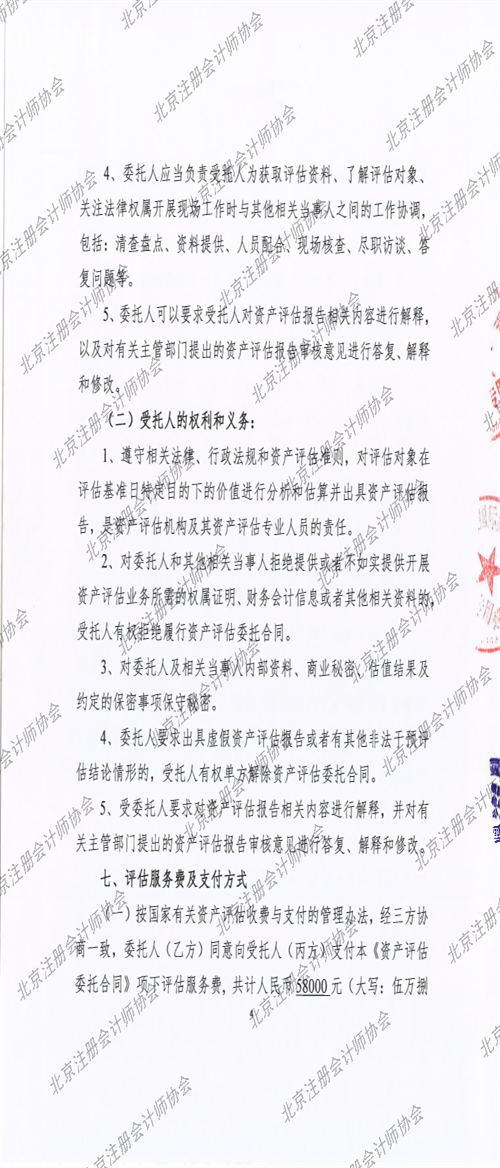 4、委托人应当负责受托人为获取评估资料、了解评估对象、
关注法律权属开展现场工作时与其他相关当事人之间的工作协调，
包括：清查盘点、资料提供、人员配合、现场核查、尽职访谈、答
复问题等。
5、委托人可以要求受托人对资产评估报告相关内容进行解释，
以及对有关主管部门提出的资产评估报告审核意见进行答复、解释
和修改。
（二）受托人的权利和义务：
1、遵守相关法律、行政法规和资产评估准则，对评估对象在
评估基准日特定目的下的价值进行分析和估算并出具资产评估报
告，是资产评估机构及其资产评估专业人员的责任。
2、对委托人和其他相关当事人拒绝提供或者不如实提供开展
资产评估业务所需的权属证明、财务会计信息或者其他相关资料的，
受托人有权拒绝履行资产评估委托合同。
3、对委托人及相关当事人内部资料、商业秘密、估值结果及
约定的保密事项保守秘密。
4、委托人要求出具虚假资产评估报告或者有其他非法干预评
估结论情形的，受托人有权单方解除资产评估委托合同。
5、受委托人要求对资产评估报告相关内容进行解释，并对有
关主管部门提出的资产评估报告审核意见进行答复、解释和修改。
七、评估服务费及支付方式
（一）按国家有关资产评估收费与支付的管理办法，经三方协
商一致，委托人（乙方）同意向受托人（丙方）支付本《资产评估
委托合同》项下评估服务费，共计人民币 58000 元（大写：伍万捌
4
北京注册会计师协会